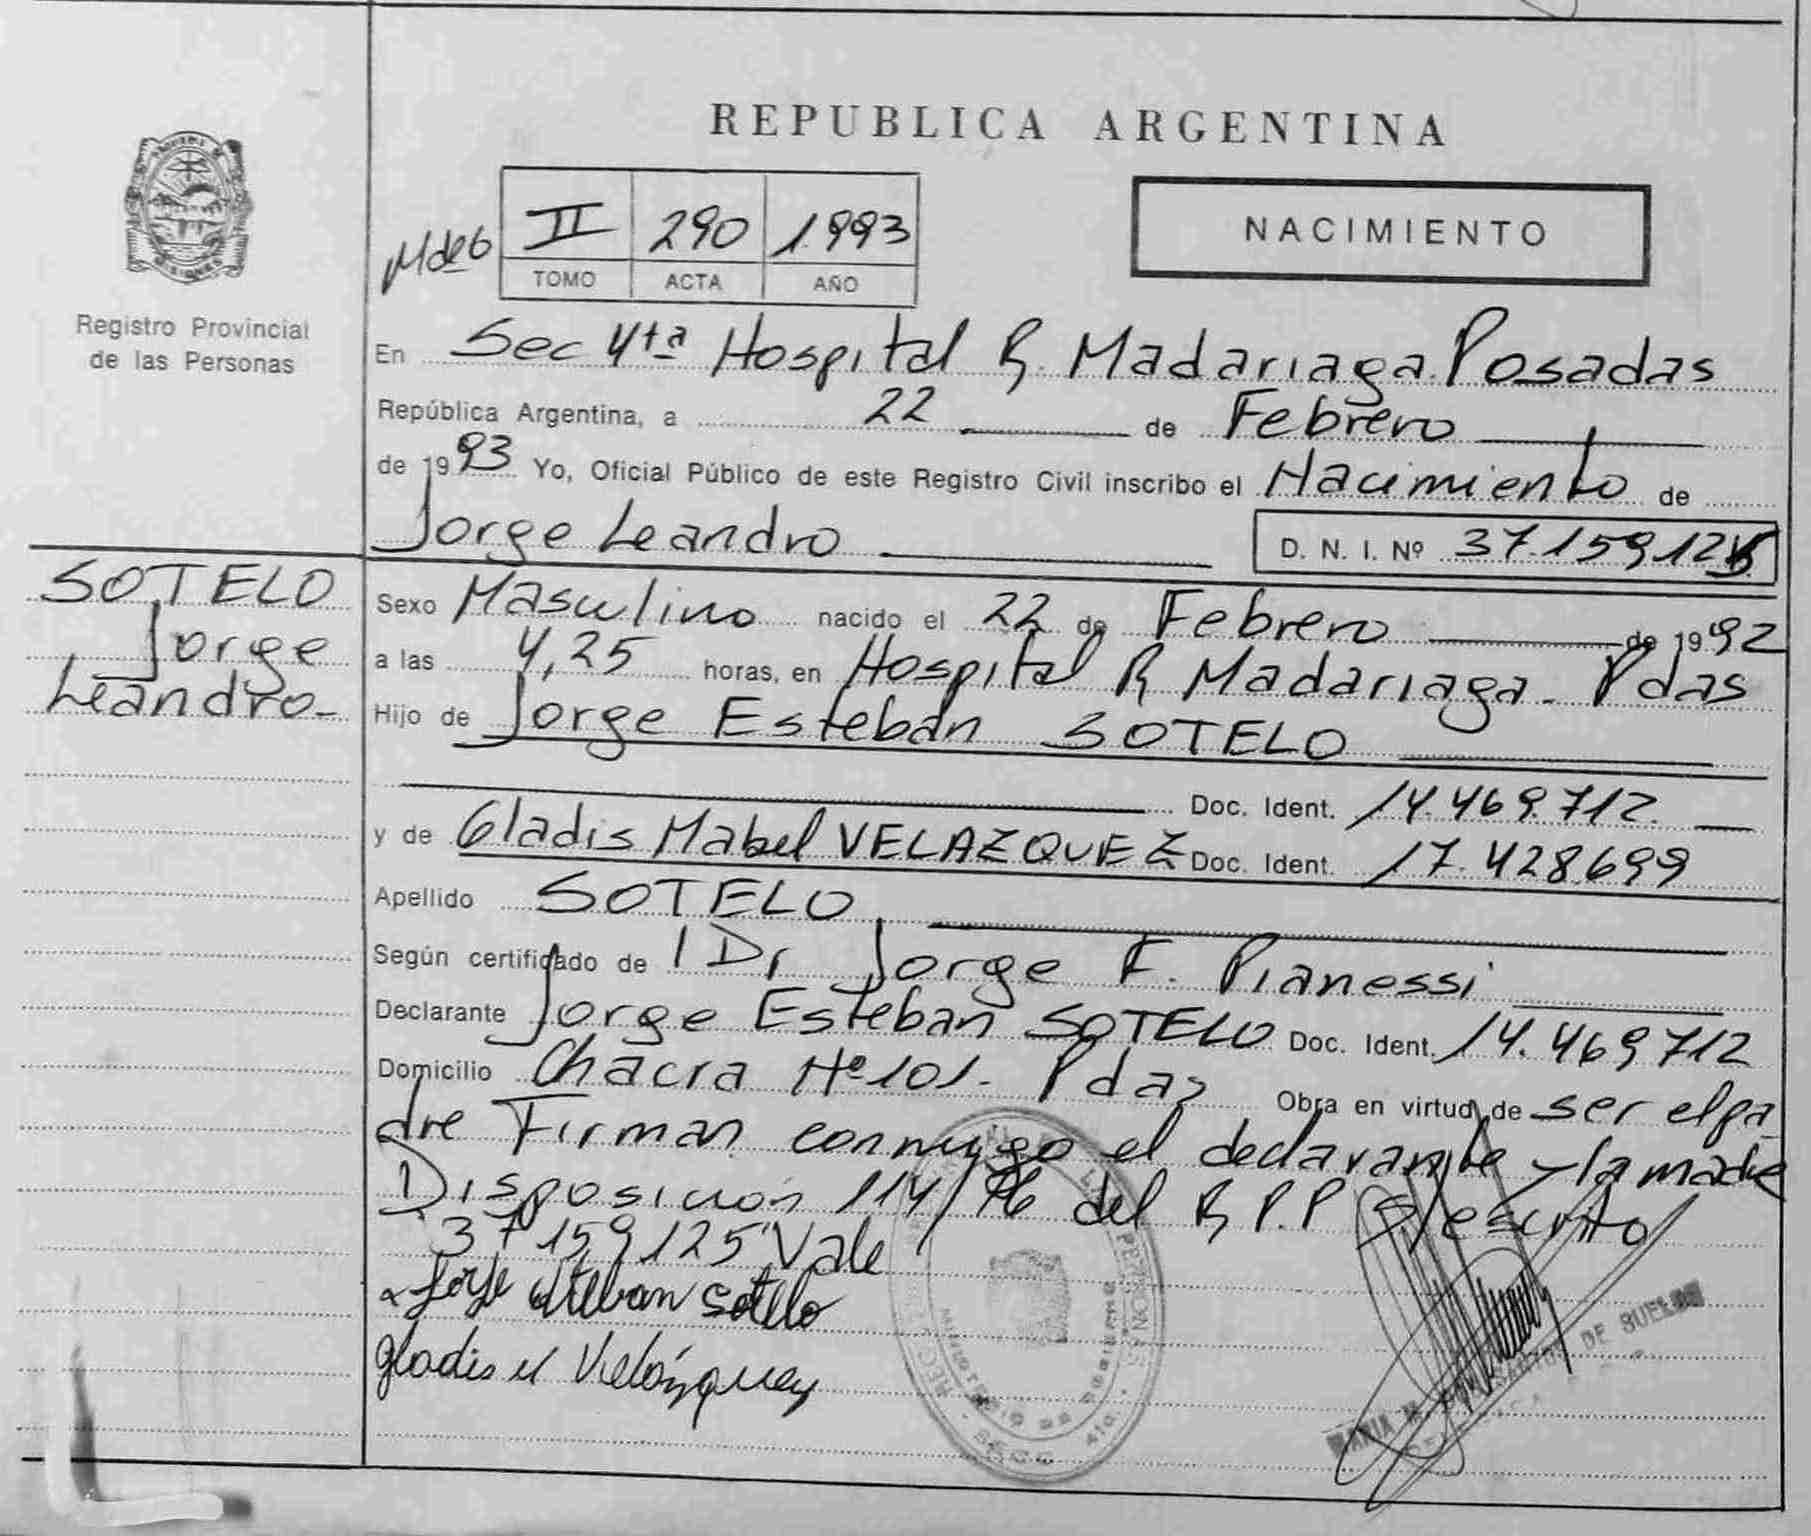 REPUBLICA ARGENTINA
Registro Provincial
de las Personas
II 290 1.993
TOMO ACTA AÑO
NACIMIENTO
En Sec 4ta Hospital R. Madariaga. Posadas
República Argentina, a 22 de Febrero
de 1993 Yo, Oficial Público de este Registro Civil inscribo el Nacimiento de
Jorge Leandro
D. N. I. Nº 37.159.125
SOTELO
Jorge
Leandro-
Sexo Masculino nacido el 22 de Febrero de 1992
a las 4,25 horas, en Hospital R Madariaga - Pdas
Hijo de Jorge Esteban SOTELO
Doc. Ident. 14.469.712.
y de Gladis Mabel VELAZQUEZ Doc. Ident. 17.428.699
Apellido SOTELO
Según certificado de l Dr Jorge F. Pianessi
Declarante Jorge Esteban SOTELO Doc. Ident. 14.469712
Domicilio Chacra Nº 101- Pdas Obra en virtud de ser el pa
dre Firman conmigo el declarante y la madre
Disposición 114/96 del R P.P s/escrito
"37159125" Vale
Jorge Esteban Sotelo
gladis M Velázquez
REG PERSONAS
SECC 4ta.
DE